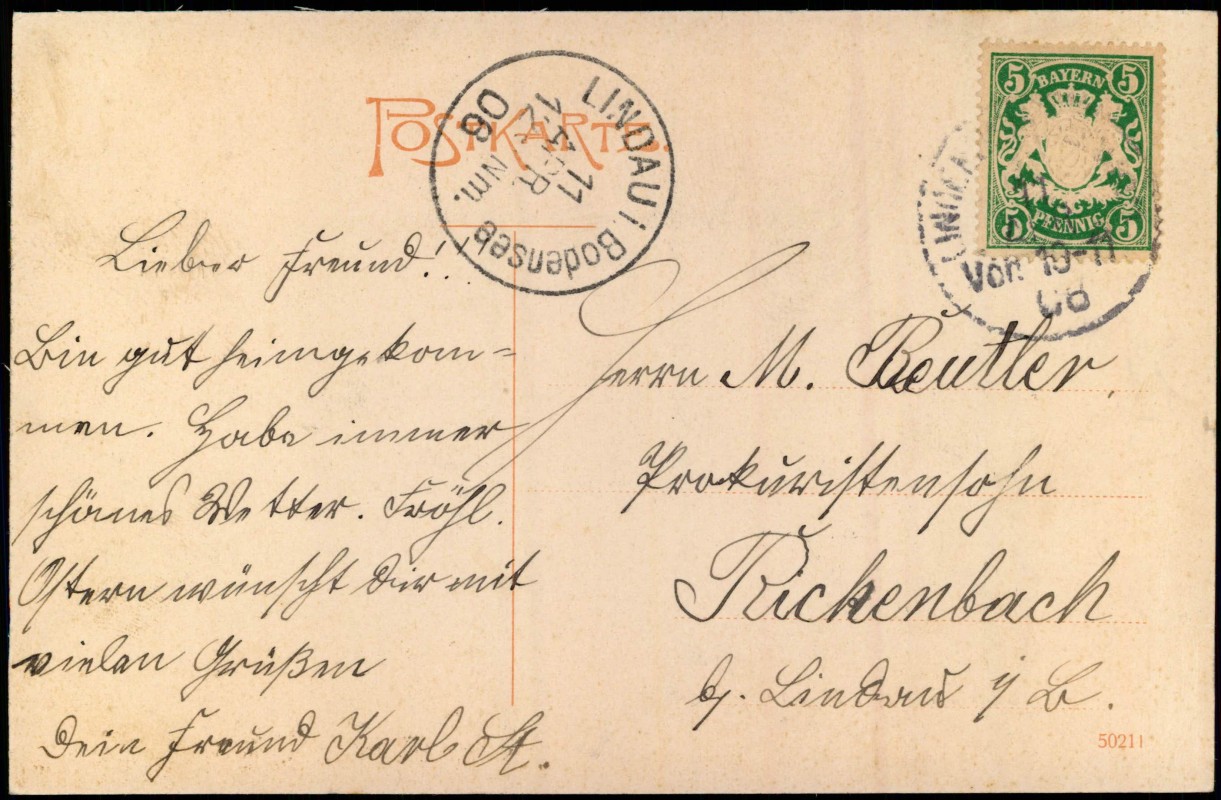 POSTKARTE.
LINDAU i. Bodensee
11
APR
Nm.
08
5 BAYERN 5
5 PFENNIG 5
LINDAU
11
Vor. 10-11
08
Lieber Freund!
Bin gut heimgekom=
men. Habe immer
schönes Wetter. Fröhl.
Ostern wünscht Dir mit
vielen Grüßen
Dein Freund Karl St.
Herrn M. Beutler,
Prokuristensohn
Rickenbach
b/. Lindau i/ B.
50211